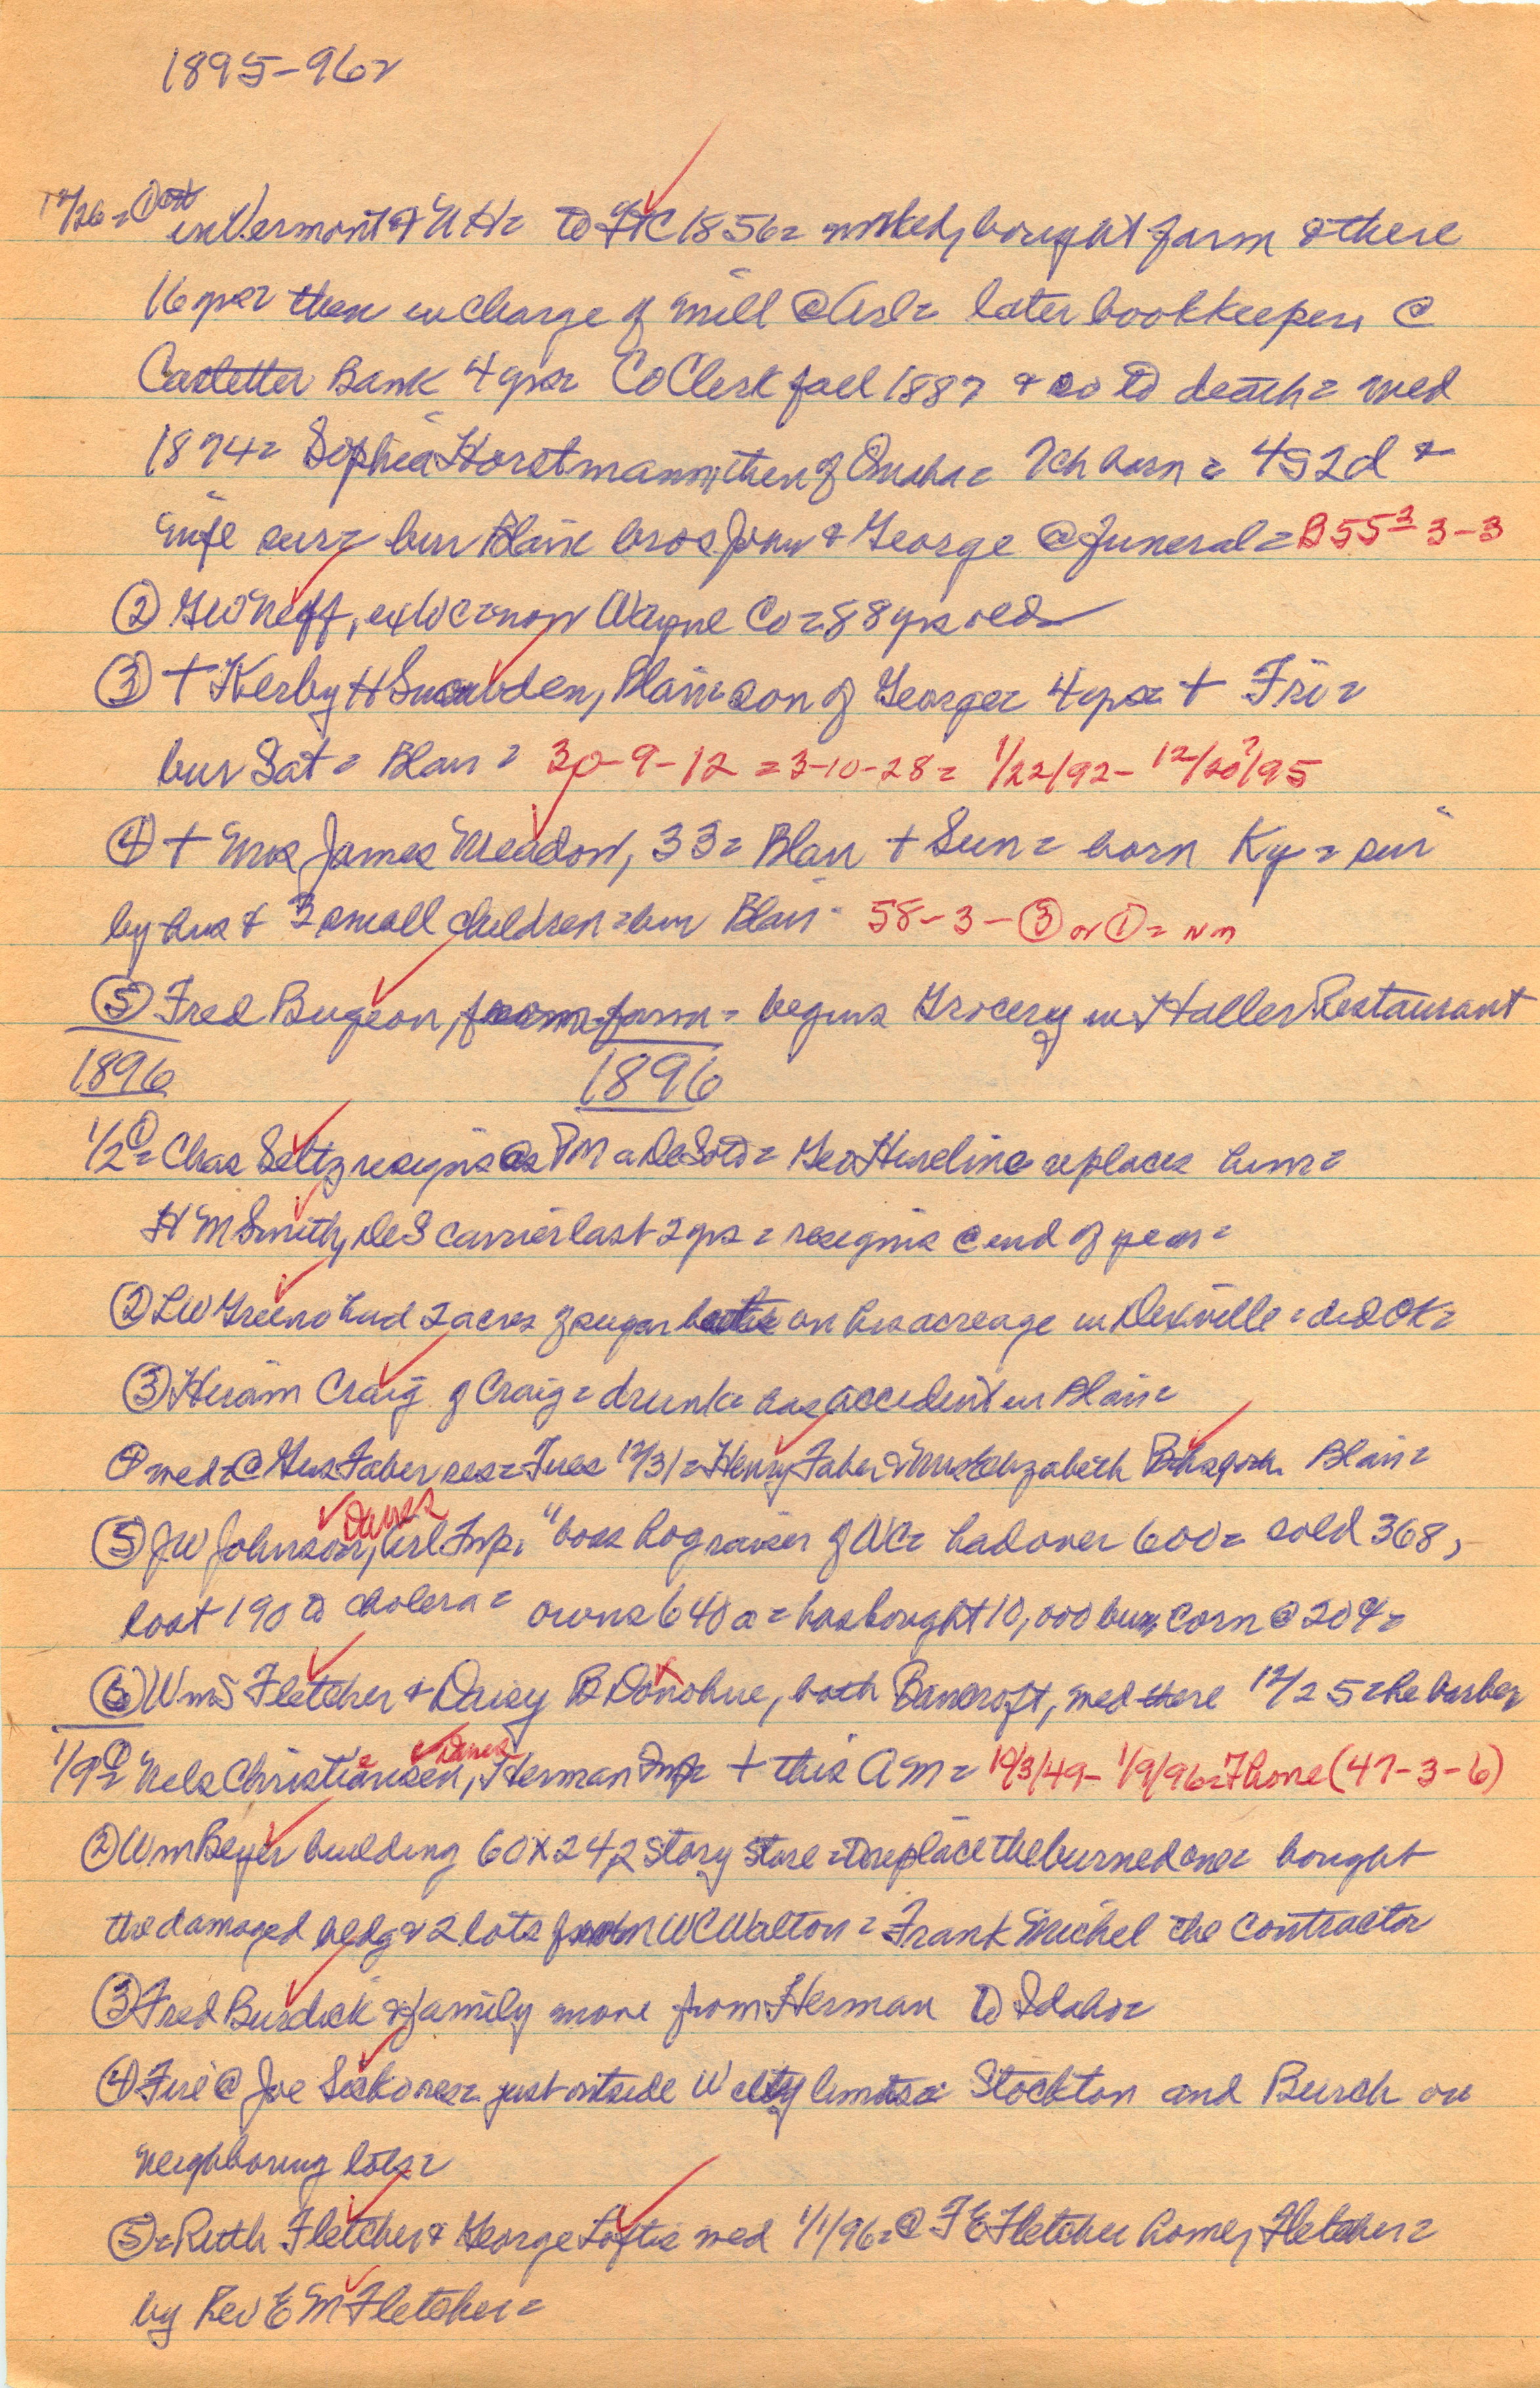 1895-96=
12/26= ① cont
in Vermont & NH= to FtC 1856= worked, bought farm & there
16 yrs= then in charge of mill @ Arl= later bookkeeper, @
Castetter Bank 4 yrs= Co Clerk fall 1887 & so to death= wed
1874= Sophia Horstmann, then of Omaha= 7 ch born = 4s 2d &
wife sur= bur Blair bros John & George @ funeral= B55= 3-3
② GW Neff, ex WC= now Wayne Co= 88 yrs old
③ + Kerby H Snowden, Blair= son of George= 4 yrs + Fri=
bur Sat = Blair = 30-9-12 = 3-10-28 = 1/22/92 - 12/20?/95
④ + Mrs James Meadow, 33= Blair + Sun= born Ky = sur
by hus & 3 small children= bur Blair= 58-3-③ or ①= nm
⑤ Fred Bugeon, from farm = begins Grocery in Haller Restaurant
1896 1896
1/2= ① Chas Seltz resigns as PM @ DeSoto= Geo Hineline replaces him=
H M Smith, DeS carrier last 2 yrs = resigns @ end of year=
② LW Greeno had 2 acres of sugar beets on his acreage in Dexville = did OK=
③ Hiram Craig of Craig= drunk= has accident in Blair=
④ wed= @ Gus Faber res= Tues 12/31= Henry Faber & Miss Elizabeth Blair=
⑤ JW Johnson, Danes Arl Twp, "boss hog raiser of WC= had over 600= sold 368,
lost 190 to cholera= owns 640 a = has bought 10,000 bu corn @ 20¢=
⑥ Wm S Fletcher & Daisy B Donohue, both Bancroft, wed there 12/25= he barber
1/9= ① Nels Christiansen, Danes Herman Twp= + this AM= 10/3/49 - 1/9/96= Thone (47-3-6)
② Wm Beyer building 60X24, 2 story store= to replace the burned one= bought
the damaged bldg & 2 lots from WC Walton = Frank Michel the contractor
③ Fred Burdick & family move from Herman to Idaho=
④ Fire @ Joe Sisko res= just outside W city limits= Stockton and Burch on
neighboring lots=
⑤= Ruth Fletcher & George Loftis wed 1/1/96= @ F E Fletcher home, Fletcher=
by Rev E M Fletcher=